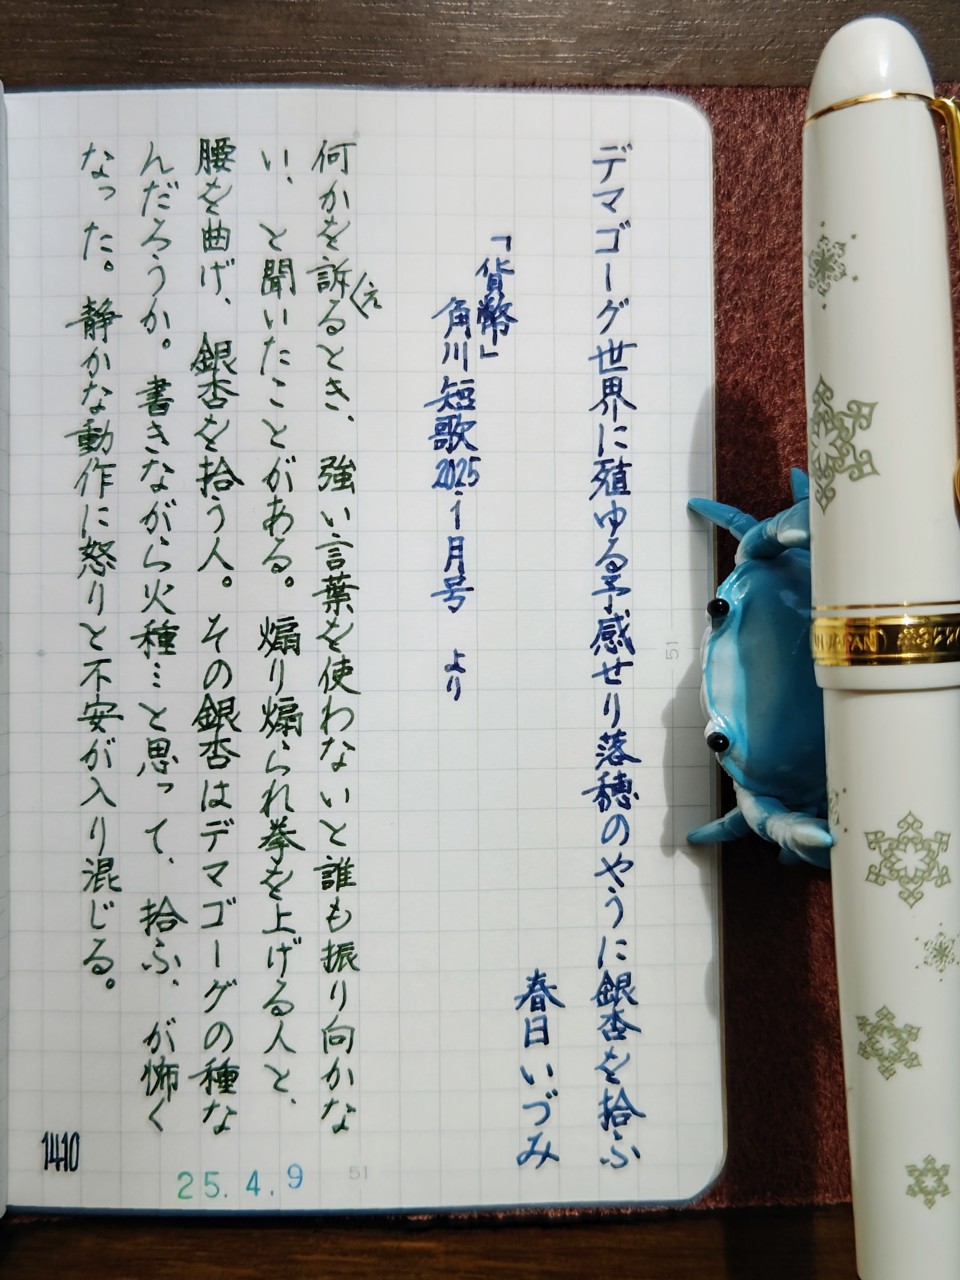 デマゴーグ世界に殖ゆる予感せり落穂のやうに銀杏を拾ふ
春日いづみ
「貨幣」
角川短歌2025.1月号 より
何かを訴るとき、強い言葉を使わないと誰も振り向かな
え
い、と聞いたことがある。煽り煽られ拳を上げる人と、
腰を曲げ、銀杏を拾う人。その銀杏はデマゴーグの種な
んだろうか。書きながら火種…と思って、拾ふ、が怖く
なった。静かな動作に怒りと不安が入り混じる。
1410
25.4.9
51
51
JAPAN